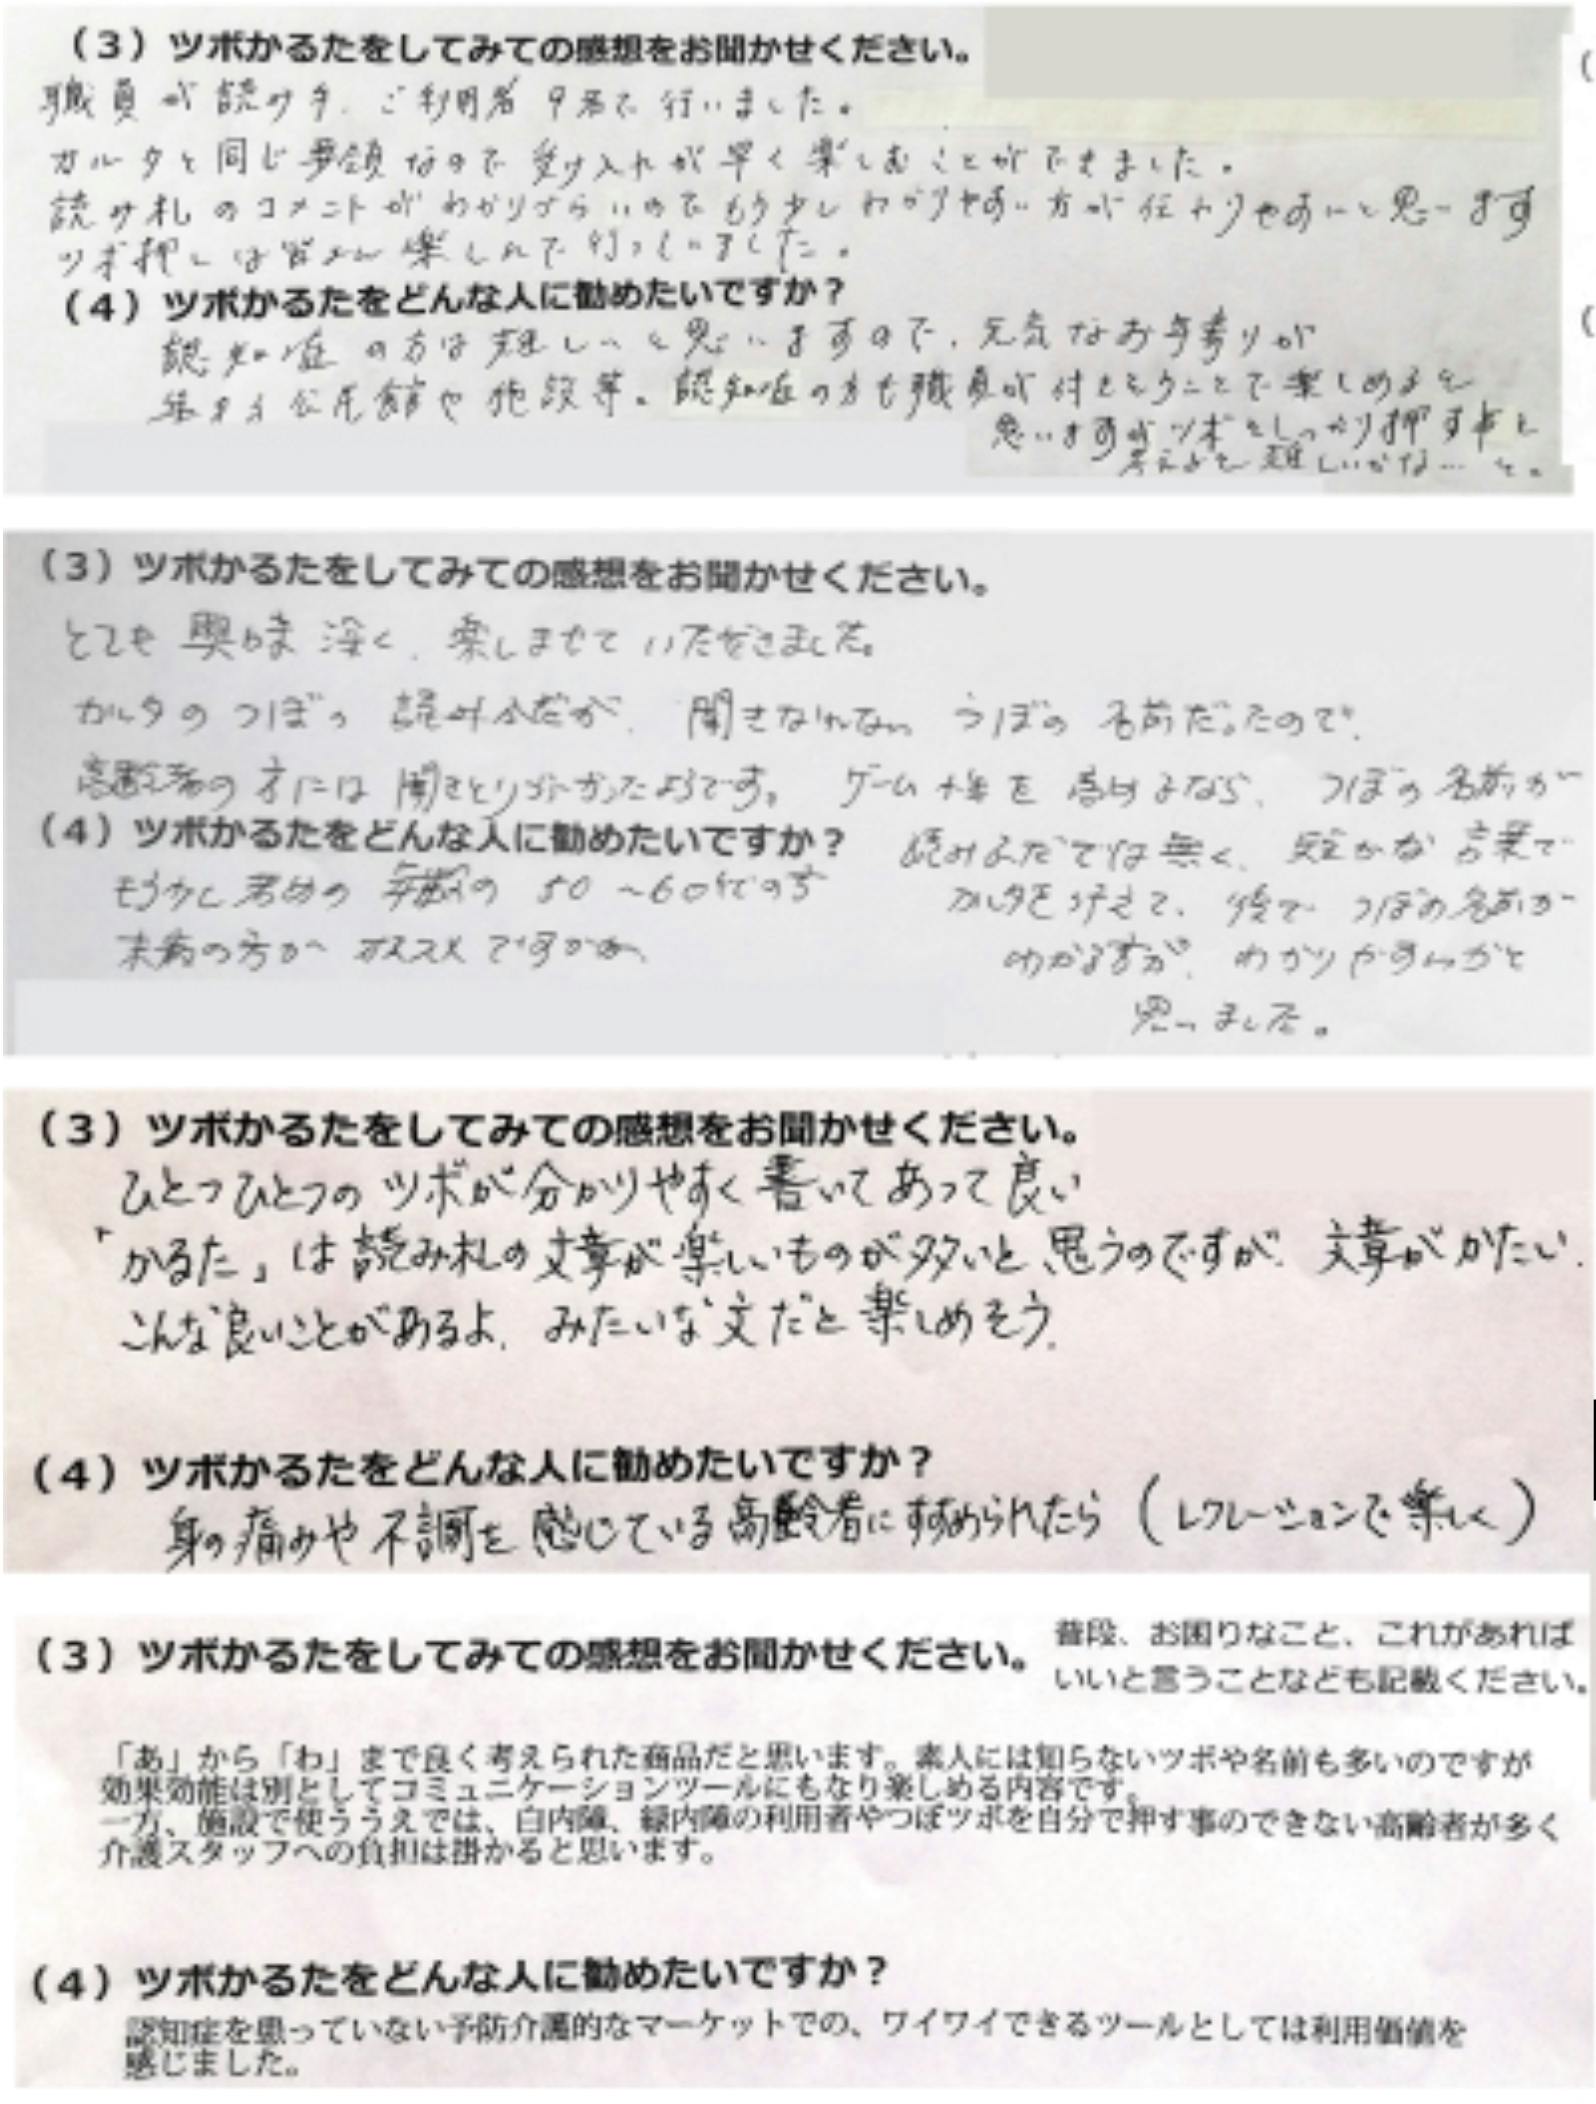 （3）ツボかるたをしてみての感想をお聞かせください。
職員が読み手、ご利用者9名で行いました。
カルタと同じ要領なので受け入れが早く楽しむことができました。
読み札のコメントがわかりづらいのでもう少しわかりやすい方が伝わりやすいと思います
ツボ押しは皆さん楽しんで行っていました。
（4）ツボかるたをどんな人に勧めたいですか？
認知症の方は難しいと思いますので、元気なお年寄りが
集まる公民館や施設等。認知症の方も職員が付きそうことで楽しめると
思いますがツボをしっかり押す事を
考えると難しいかな…と。
（3）ツボかるたをしてみての感想をお聞かせください。
とても興味深く、楽しませていただきました。
カルタのつぼの読み人だが、聞きなれない つぼの名前だったので、
高齢者の方には聞きとりづらかったようです。 ゲーム性を高めるなら、つぼの名前が
（4）ツボかるたをどんな人に勧めたいですか？
読みふだでは無く、短かな言葉で
もう少し若めの年齢の50～60代の方
カルタを 後で つぼの名前が
未病の方が オススメですかね
わかる方が、わかりやすいかと
思いました。
（3）ツボかるたをしてみての感想をお聞かせください。
ひとつひとつのツボが分かりやすく書いてあって良い
「かるた」は読み札の文章が楽しいものが多いと思うのですが、文章がかたい.
こんな良いことがあるよ、みたいな文だと楽しめそう.
（4）ツボかるたをどんな人に勧めたいですか？
身の痛みや不調を感じている高齢者にすすめられたら（レクレーションで楽しく）
（3）ツボかるたをしてみての感想をお聞かせください。
普段、お困りなこと、これがあれば
いいと言うことなども記載ください。
「あ」から「わ」まで良く考えられた商品だと思います。素人には知らないツボや名前も多いのですが
効果効能は別としてコミュニケーションツールにもなり楽しめる内容です。
一方、施設で使ううえでは、白内障、緑内障の利用者やつぼツボを自分で押す事のできない高齢者が多く
介護スタッフへの負担は掛かると思います。
（4）ツボかるたをどんな人に勧めたいですか？
認知症を患っていない予防介護的なマーケットでの、ワイワイできるツールとしては利用価値を
感じました。